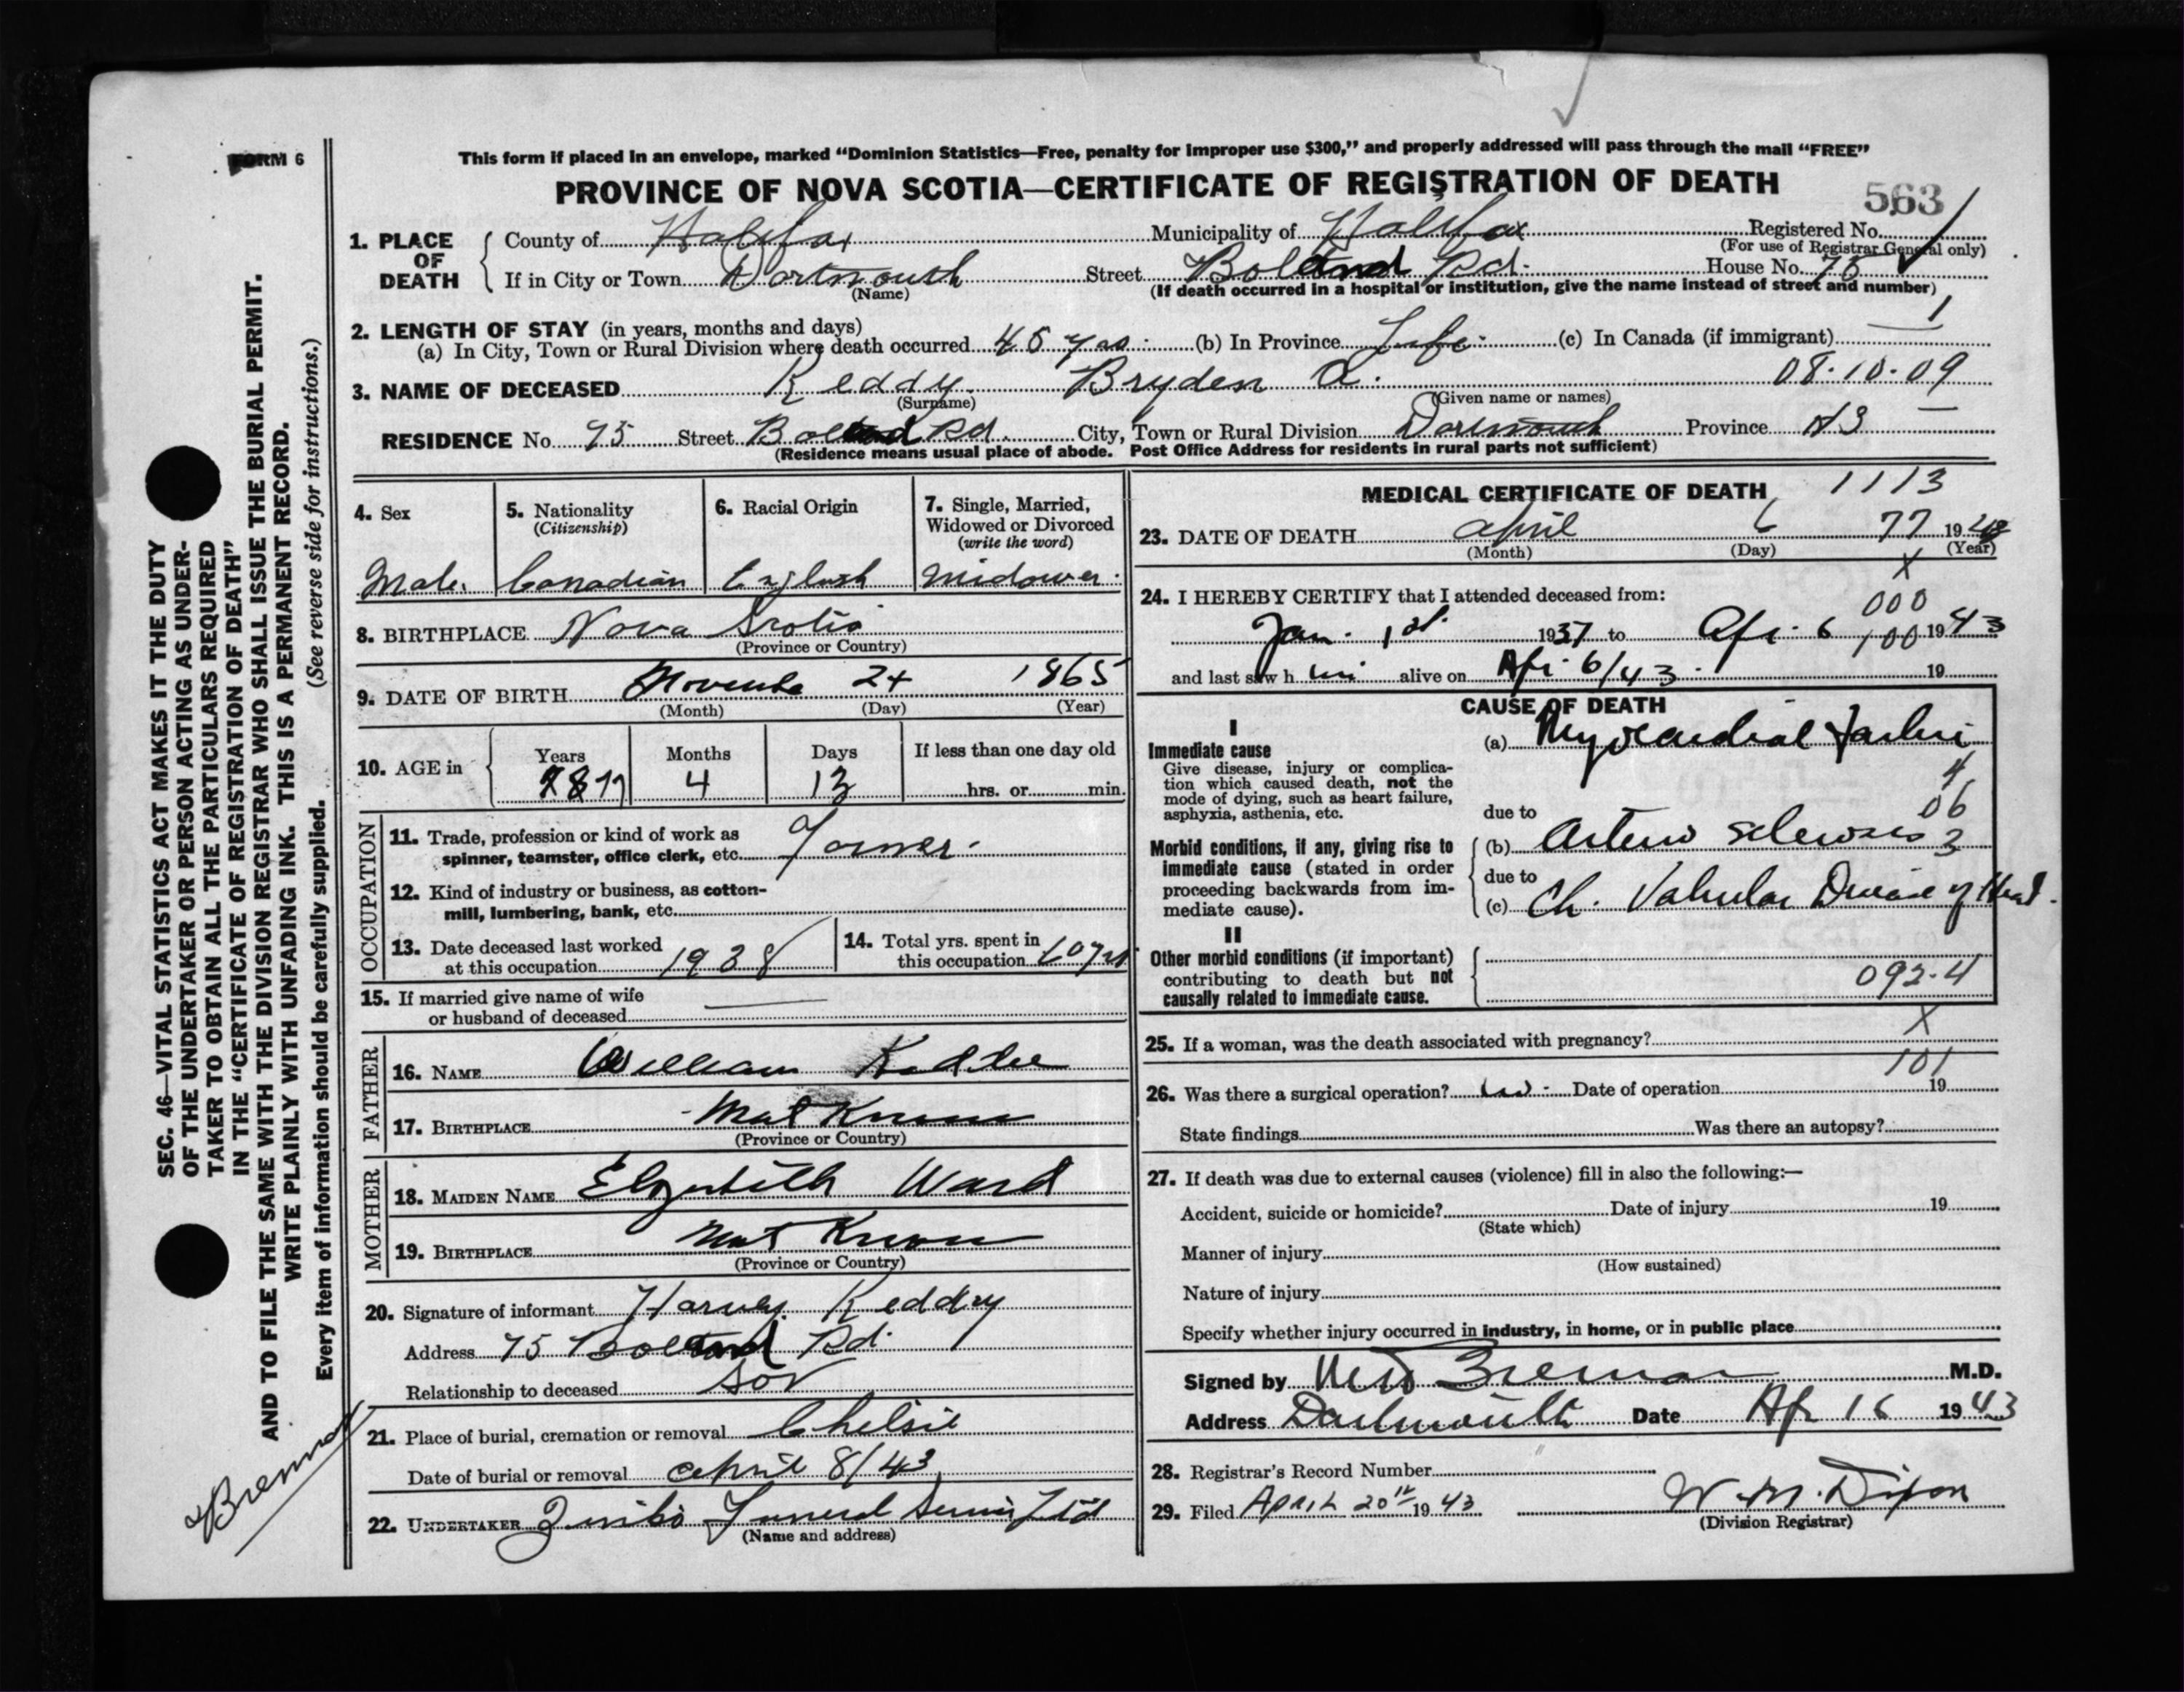 FORM 6
This form if placed in an envelope, marked “Dominion Statistics—Free, penalty for improper use $300,” and properly addressed will pass through the mail “FREE”
PROVINCE OF NOVA SCOTIA—CERTIFICATE OF REGISTRATION OF DEATH
563
1. PLACE OF DEATH
County of Halifax Municipality of Halifax Registered No.
(For use of Registrar General only)
If in City or Town Dartmouth Street Boland Rd. House No. 75
(Name) (If death occurred in a hospital or institution, give the name instead of street and number)
1
2. LENGTH OF STAY (in years, months and days)
(a) In City, Town or Rural Division where death occurred 45 yrs. (b) In Province Life. (c) In Canada (if immigrant)
3. NAME OF DECEASED Reddy Bryden A. 08-10-09
(Surname) (Given name or names)
RESIDENCE No. 75 Street Boland Rd. City, Town or Rural Division Dartmouth Province NS
(Residence means usual place of abode. Post Office Address for residents in rural parts not sufficient)
4. Sex
Male.
5. Nationality
(Citizenship)
Canadian
6. Racial Origin
English
7. Single, Married,
Widowed or Divorced
(write the word)
Widower.
8. BIRTHPLACE Nova Scotia
(Province or Country)
9. DATE OF BIRTH November 24 1865
(Month) (Day) (Year)
10. AGE in
Years Months Days If less than one day old
77 4 13 hrs. or min.
OCCUPATION
11. Trade, profession or kind of work as
spinner, teamster, office clerk, etc.
12. Kind of industry or business, as cotton-
mill, lumbering, bank, etc.
13. Date deceased last worked
at this occupation 1938
14. Total yrs. spent in
this occupation 60 yrs
15. If married give name of wife
or husband of deceased
FATHER
16. NAME William
17. BIRTHPLACE Not Known
(Province or Country)
MOTHER
18. MAIDEN NAME Elizabeth Ward
19. BIRTHPLACE Not Known
(Province or Country)
20. Signature of informant Harvey Keddy
Address 75 Boland Rd.
Relationship to deceased Son
21. Place of burial, cremation or removal Chelsie
Date of burial or removal April 8/43
22. UNDERTAKER Funeral Service Ltd
(Name and address)
MEDICAL CERTIFICATE OF DEATH 1113
23. DATE OF DEATH April 6 77 1943
(Month) (Day) (Year)
X
24. I HEREBY CERTIFY that I attended deceased from:
000
Jan. 1st. 1937 to Apr. 6 100 1943
and last saw h im alive on Apr 6/43. 19
CAUSE OF DEATH
I
Immediate cause
Give disease, injury or complica-
tion which caused death, not the
mode of dying, such as heart failure,
asphyxia, asthenia, etc.
(a) Myocardial Failure
4
06
3
due to
Morbid conditions, if any, giving rise to
immediate cause (stated in order
proceeding backwards from im-
mediate cause).
(b) Arterio sclerosis
due to
(c) Ch. Valvular Disease of Heart.
II
Other morbid conditions (if important)
contributing to death but not
causally related to immediate cause.
092.4
X
25. If a woman, was the death associated with pregnancy?
101
26. Was there a surgical operation? No. Date of operation 19
State findings Was there an autopsy?
27. If death was due to external causes (violence) fill in also the following:—
Accident, suicide or homicide? Date of injury 19
(State which)
Manner of injury
(How sustained)
Nature of injury
Specify whether injury occurred in industry, in home, or in public place
Signed by M.D.
Address Dartmouth Date Apr 16 1943
28. Registrar’s Record Number
29. Filed APRIL 20th 1943 W. M. Dixon
(Division Registrar)
SEC. 46—VITAL STATISTICS ACT MAKES IT THE DUTY
OF THE UNDERTAKER OR PERSON ACTING AS UNDER-
TAKER TO OBTAIN ALL THE PARTICULARS REQUIRED
IN THE “CERTIFICATE OF REGISTRATION OF DEATH”
AND TO FILE THE SAME WITH THE DIVISION REGISTRAR WHO SHALL ISSUE THE BURIAL PERMIT.
WRITE PLAINLY WITH UNFADING INK. THIS IS A PERMANENT RECORD.
Every item of information should be carefully supplied. (See reverse side for instructions.)